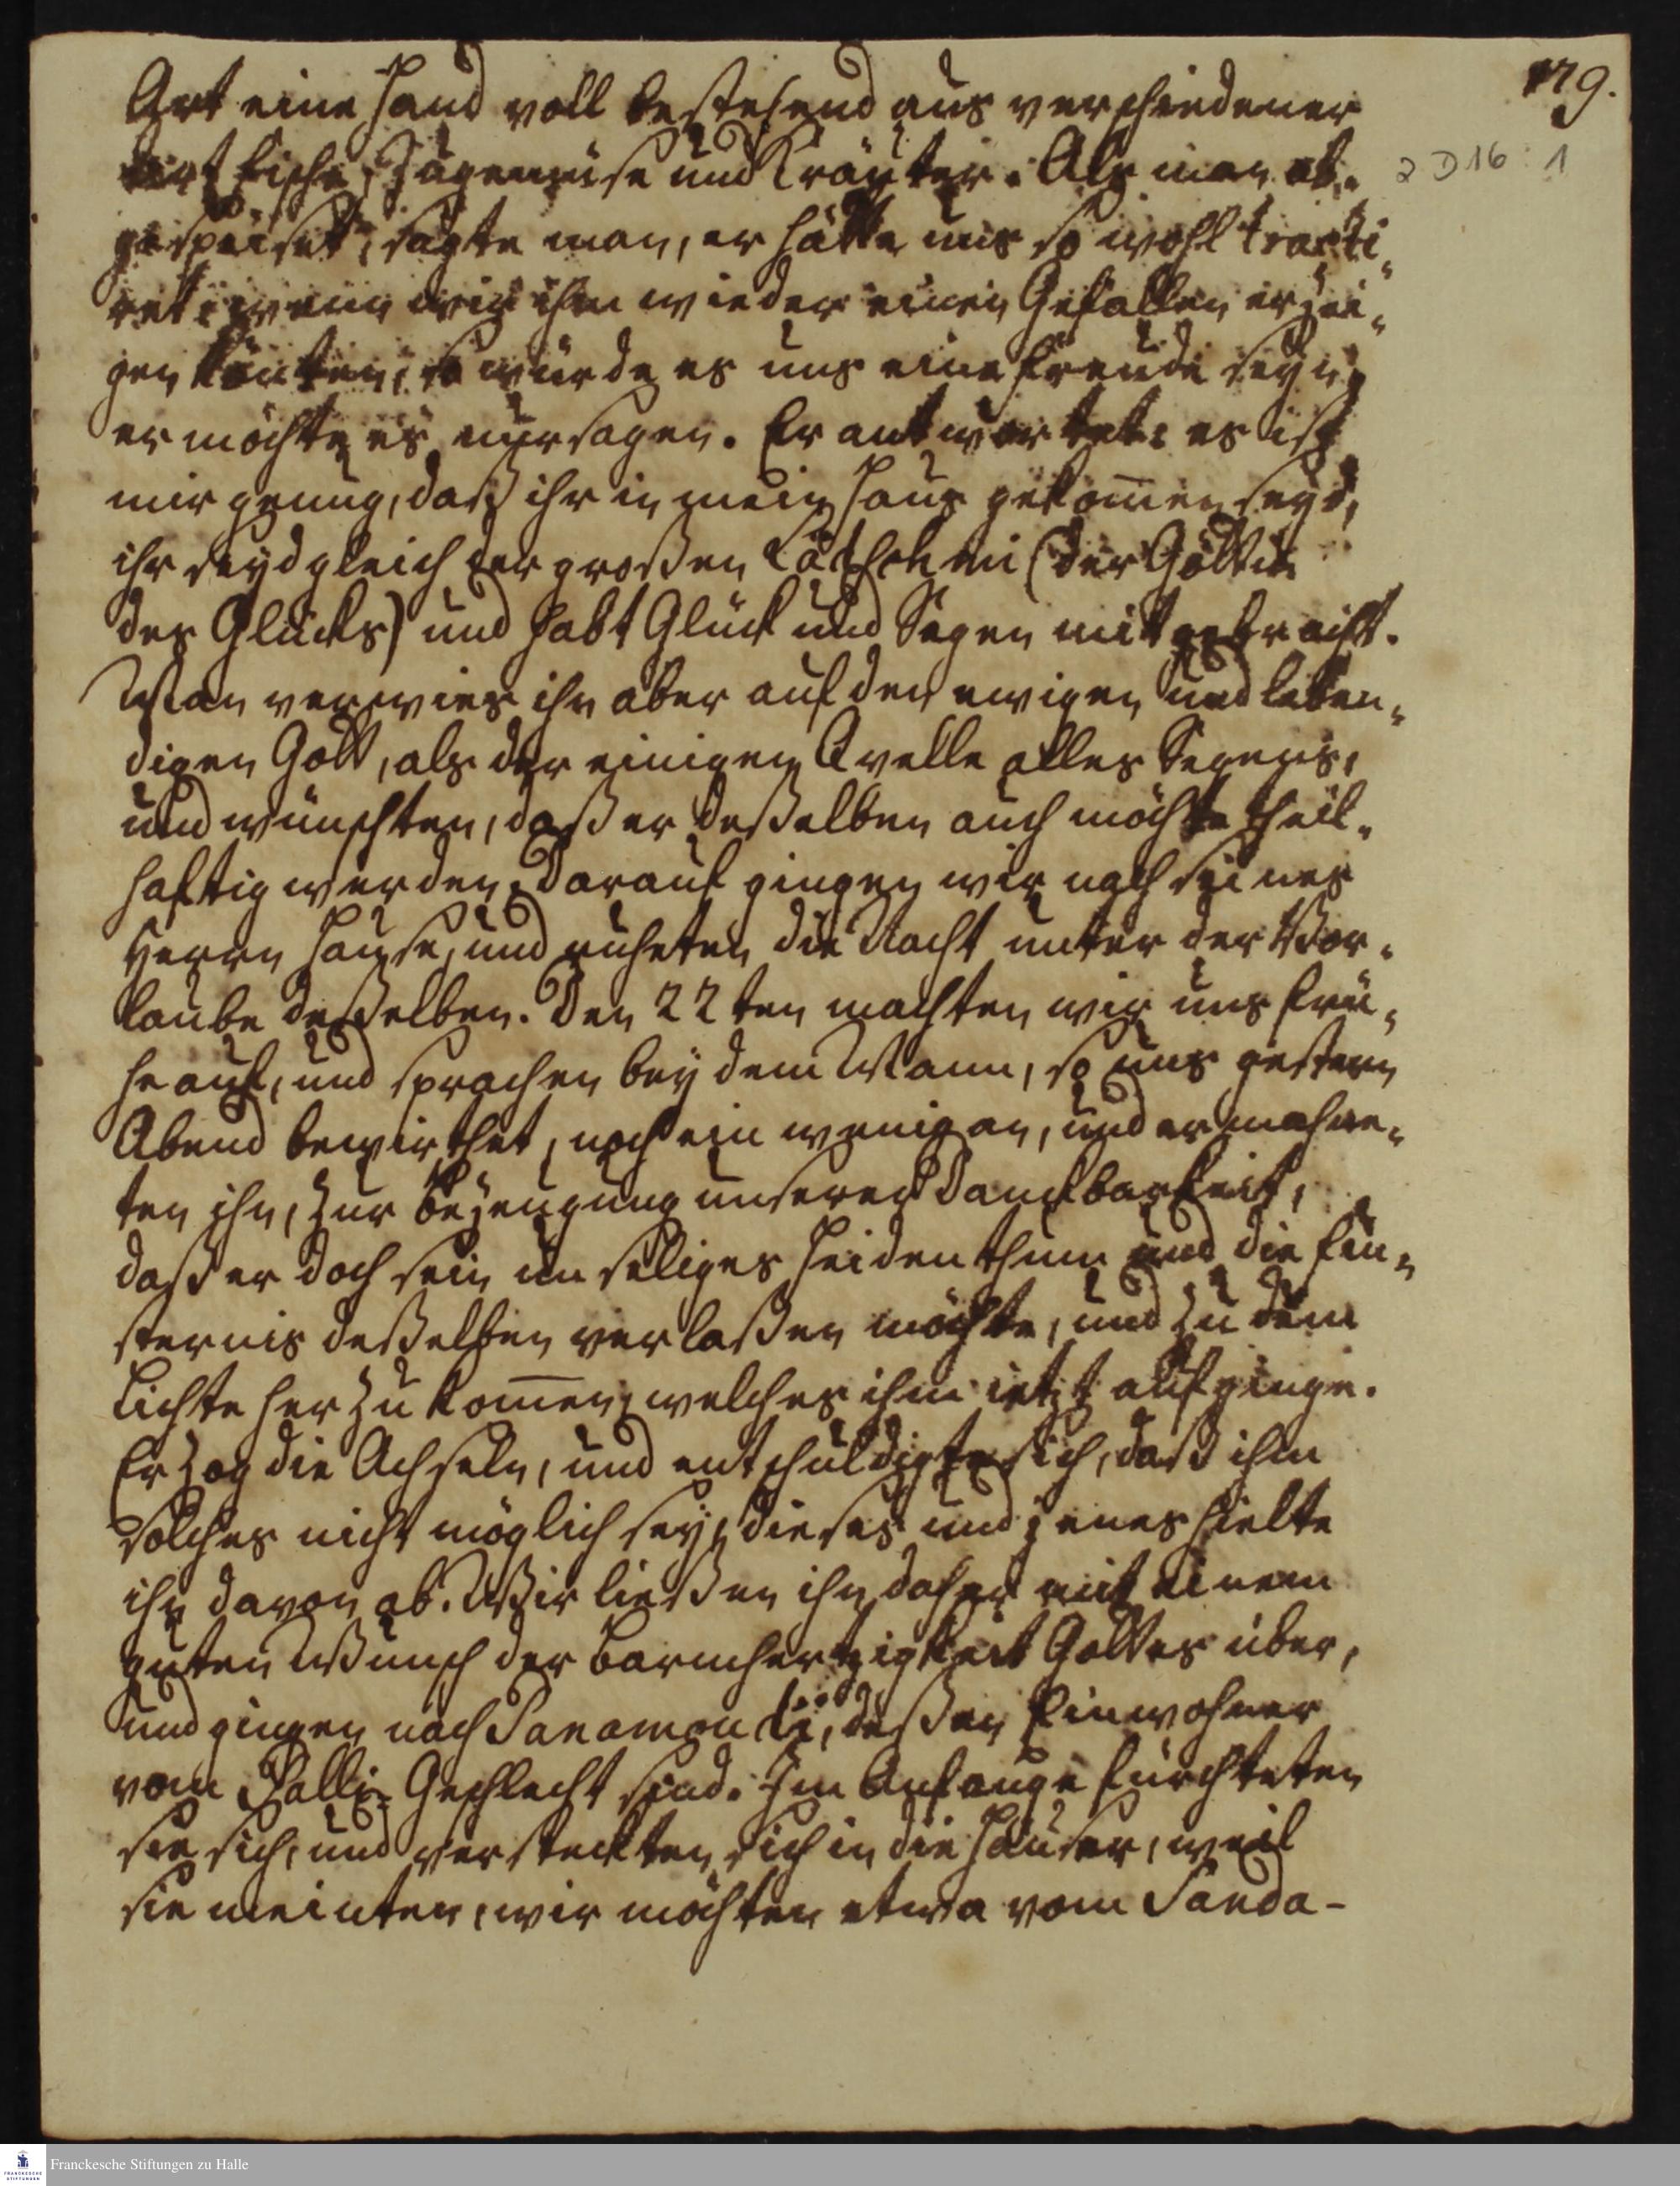 179.
2 D 16 : 1
Art eine Hand voll bestehend aus verschiedener
Fische, Zugemüse und Kräuter. Als man ab„
gespeiset, sagte man, er hätte uns so wohl tracti„
ret, wenn wir ihm wieder einen Gefallen erzei„
gen könten, so würde es uns eine Freude seyn,
er möchte es nur sagen. Er antwortet: es ist
mir genug, daß ihr in mein Haus gekom̄en seyd,
ihr seyd gleich der großen Lätschmi (der Göttin
des Glücks) und habt Glück und Segen mit gebracht.
Man verwies ihn aber auf den ewigen und leben„
digen Gott, als der einigen Qvelle alles Segens,
und wünschten, daß er deßelben auch möchte theil„
haftig werden. Darauf gingen wir nach seines
Herrn Hause, und ruheten die Nacht unter der Vor„
laube deßelben. Den 22ten machten wir uns frü„
he auf, und sprachen bey dem Mann, so uns gestern
Abend bewirthet, noch ein wenig an, und ermahne„
ten ihn, zur Bezeugung unserer Danckbarkeit,
daß er doch sein unseliges Heidenthum und die Fin„
sternis deßelben verlaßen möchte, und zu dem
Lichte herzu kom̄en, welches ihm ietzt aufginge.
Er zog die Achseln, und entschuldigte sich, daß ihm
solches nicht möglich sey, dieses und jenes hielte
ihn davon ab. Wir ließen ihn daher mit einem
guten Wunsch der Barmhertzigkeit Gottes über,
und gingen nach Panamondi, deßen Einwohner
vom Palli„ Geschlecht sind. Im Anfange fürchteten
sie sich, und versteckten sich in die Häuser, weil
sie meinten, wir möchten etwa vom Sanda-
Franckesche Stiftungen zu Halle
FRANCKESCHE
STIFTUNGEN